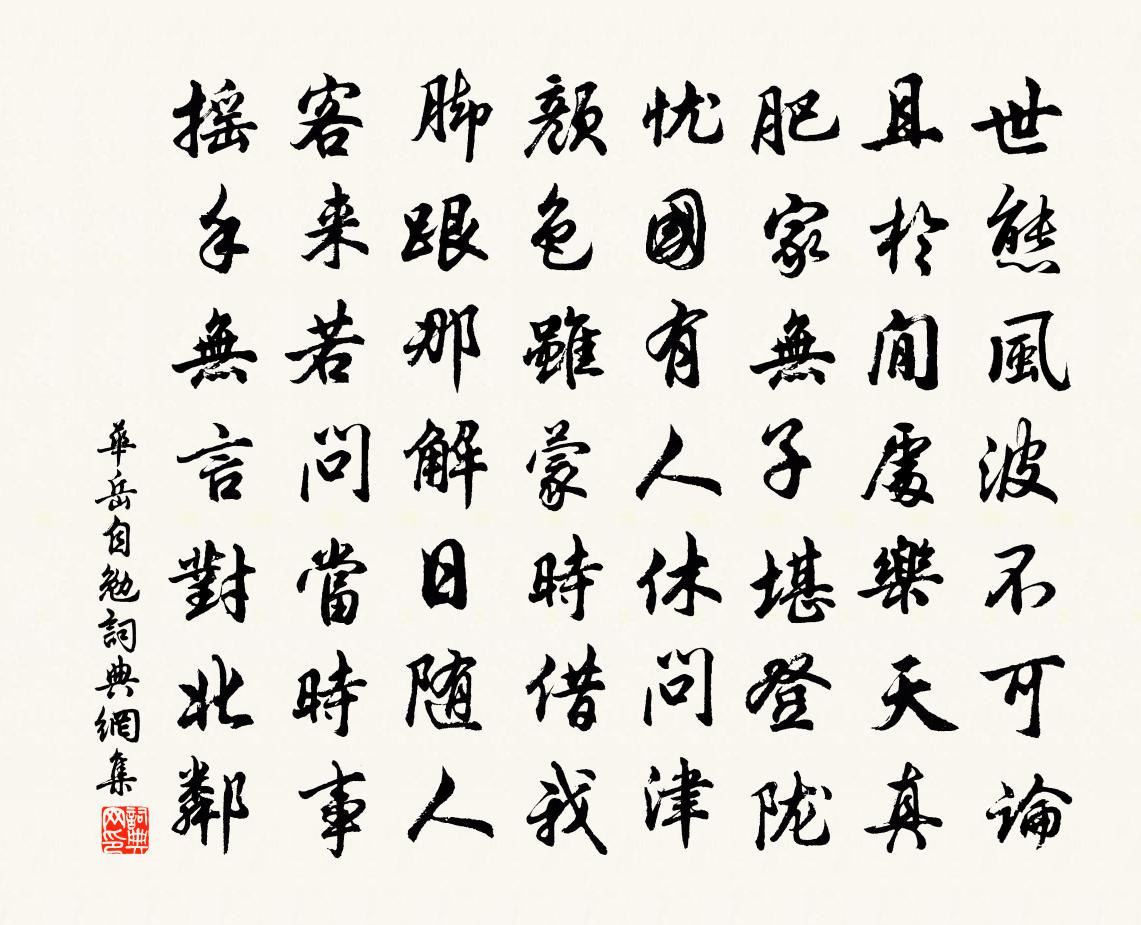 世態風波不可論
且於閒處樂天真
肥家無子堪登陇
忧國有人休問津
顔色雖蒙時借我
脚跟那解日随人
客来若問當時事
摇手無言對北鄰
華岳自勉詞典網集
詞典网印